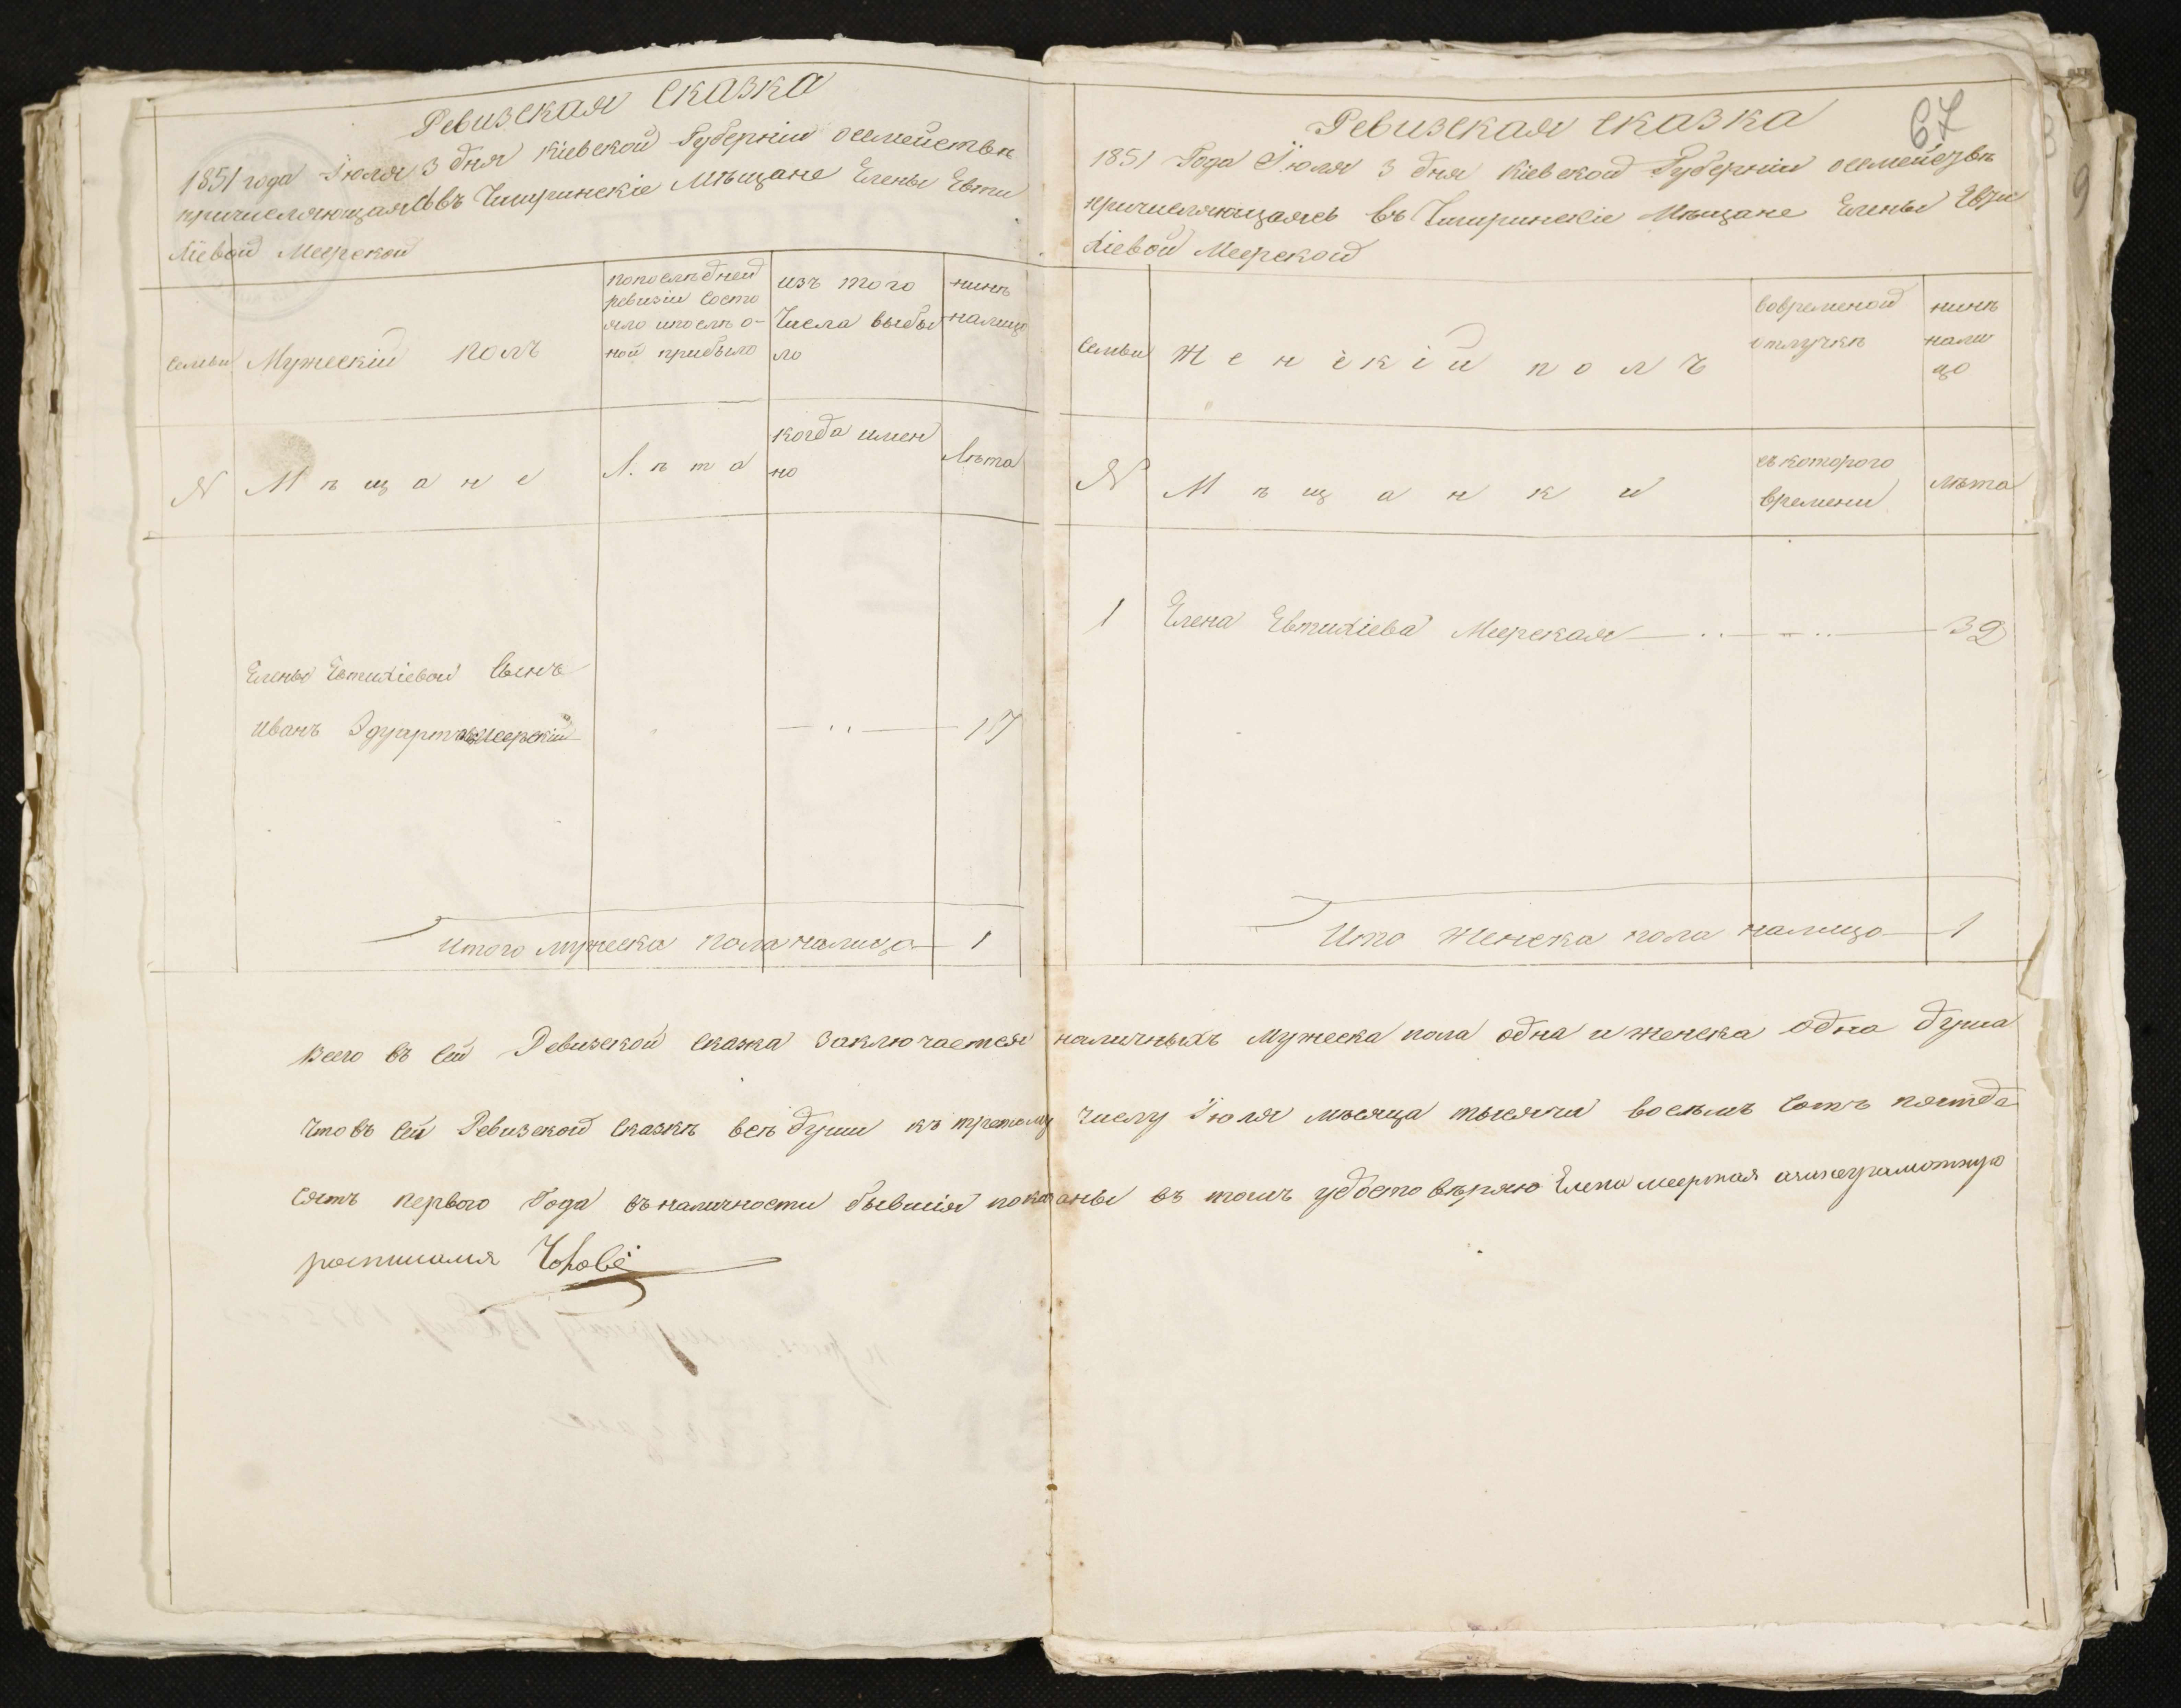 Ревизская сказка
1851 года Іюля 3 дня Кіевской Губерніи осемействѣ
причисляющаяся въ Чигиринскіе Мѣщане Елены Евти
хіевой Меерской
семьи
Мужескій полъ
попослѣдней
ревизіи состо
яло ипослѣ о-
ной прибыло
изъ того
числа выбы
ло
нинѣ
налицо
N
Мѣщане
Лѣта
когда имен
но
лѣта
Елены Евтихіевой сынъ
Иванъ Эдуартъ Меерскій
17
Итого мужеска пола налицо 1
67
Ревизская сказка
1851 Года Іюля 3 дня Кіевской Губерніи осемействѣ
причисляющаясь въ Чигиринскіе Мѣщане Елены Евти
хіевой Меерской
семьи
Женскій полъ
вовременой
отлучкѣ
нинѣ
нали
цо
N
Мѣщанки
съ которого
времени
лѣта
1 Елена Евтихіева Меерская 32
Итого женска пола налицо 1
Всего въ сей Ревизской сказка заключается наличныхъ мужеска пола одна и женска одна душа
что въ сей Ревизской сказкѣ всѣ души къ третому числу Іюля мѣсяца тысячи восѣмъ сотъ пятде
сятъ первого Года въ наличности бывшія показаны въ томъ удостовѣряю Елена Меерская а за неграмотную
росписался